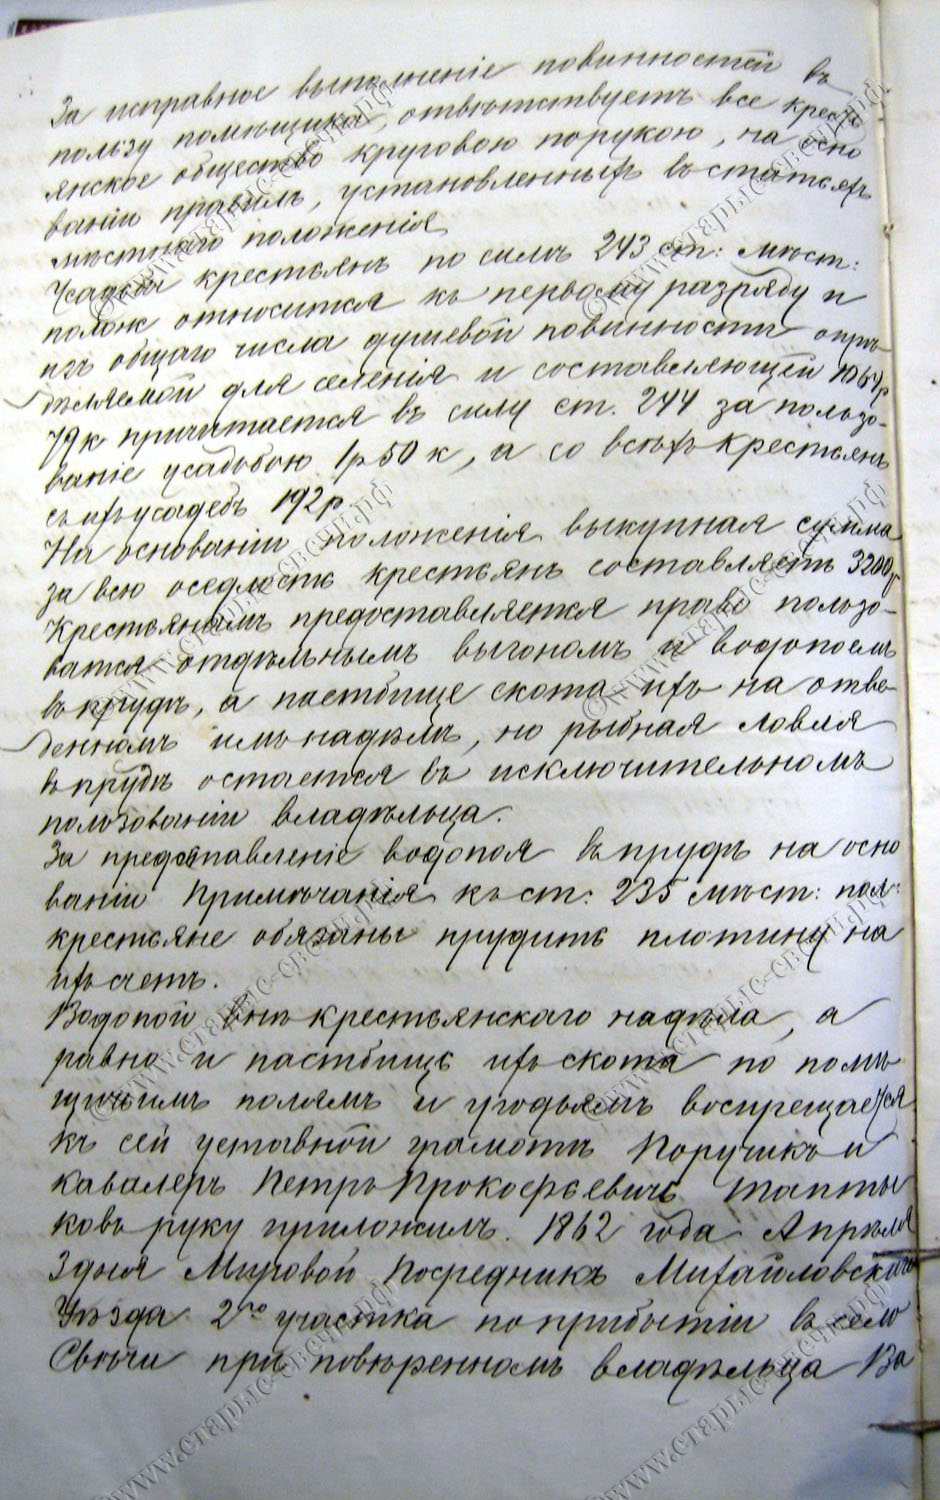 За исправное выполненіе повинностей въ
пользу помѣщика, отвѣтствуетъ все кресть
янское общество круговою порукою, на осно
ваніи правилъ, установленныхъ въ статьяхъ
мѣстнаго положенія
Усадьба крестьянъ по силѣ 243 ст: мѣст:
полож относится къ первому разряду и
изъ общаго числа душевой повинности опре
дѣляемой для селенія и составляющей 1064 р
79 к причитается въ силу ст. 244 за пользо-
ваніе усадьбою 1 р 50 к, а со всѣхъ крестьянъ
съ ихъ усадебъ 192 р.
На основаніи положенія выкупная сумма
за всю оседлость крестьянъ составляетъ 3200 р
Крестьянамъ предоставляется право пользо-
ватся отдѣльнымъ выгономъ и водопоемъ
въ прудѣ, а пастбище скота ихъ на отве-
денномъ имъ надѣлѣ, но рыбная ловля
въ прудѣ остается въ исключительномъ
пользованіи владѣльца.
За предоставленіе водопоя въ прудѣ на осно
ваніи Примѣчанія къ ст: 235 мѣст: пол:
крестьяне обязаны прудить плотину на
ихъ счетъ.
Водопой внѣ крестьянскаго надѣла, а
равно и пастбище ихъ скота по помѣ
щичьимъ полямъ и угодьямъ воспрещается
къ сей уставной грамотѣ Поручикъ и
кавалеръ Петръ Прокофьевичъ Тапты
ковъ руку приложилъ. 1862 года Апрѣля
3 дня Мировой Посредникъ Михайловскаго
Уѣзда 2го участка по прибытіи въ село
Свѣчи при повѣренномъ владѣльца Ва
©www.старыс-свечи.рф